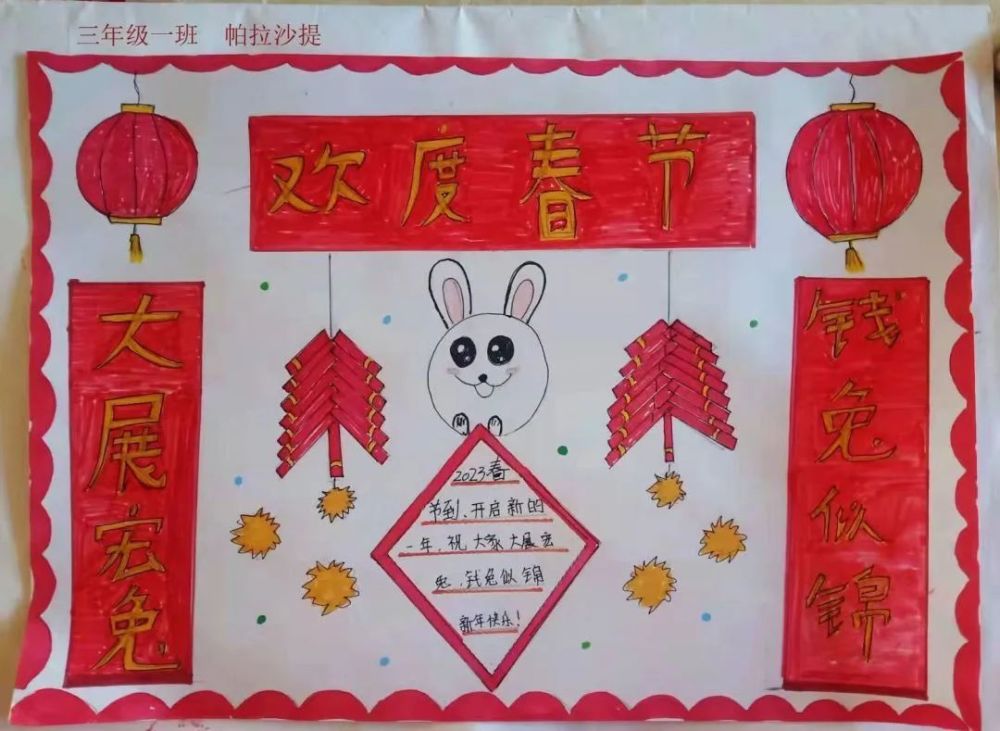 三年级一班 帕拉沙提
欢度春节
大展宏兔
钱兔似锦
2023春
节到、开启新的
一年,祝大家大展宏
兔,钱兔似锦
新年快乐!